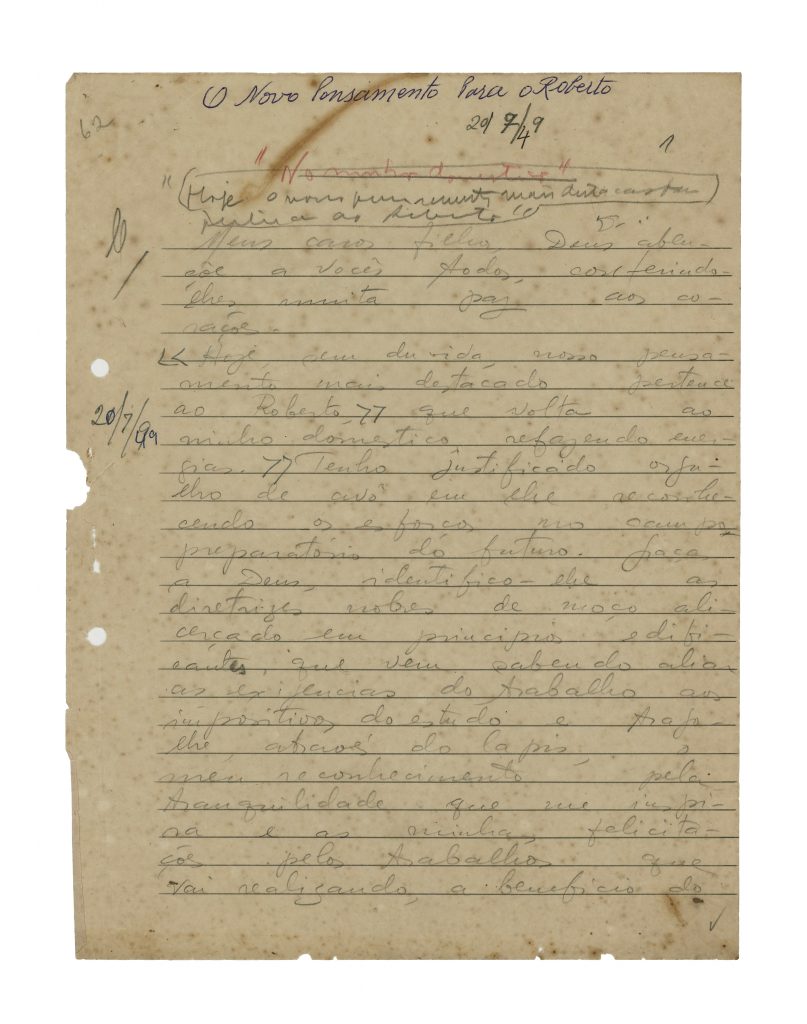 O Novo Pensamento Para o Roberto
20/7/49
62
1
"No ninho doméstico"
"(Hoje o nosso pensamento mais destacado
ao Roberto")
Meus caros filhos, Deus aben-
çôe a vocês todos, conferindo-
lhes muita paz aos co-
rações.
<< Hoje, sem duvida, nosso pensa-
mento mais destacado pertence
ao Roberto, >> que volta ao
20/7/49
ninho doméstico refazendo ener-
gias. >> Tenho justificado orgu-
lho de avô em lhe reconhe-
cendo os esforços no campo
preparatório do futuro. Graças
a Deus, identifico-lhe as
diretrizes nobres de moço ali-
cerçado em principios edifi-
cantes, que vem sabendo aliar
as exigencias do trabalho aos
impositivos do estudo e trago-
lhe, através do lapis, o
meu reconhecimento pela
tranquilidade que me inspi-
ra e as minhas felicita-
ções pelos trabalhos que
vai realizando, a beneficio do